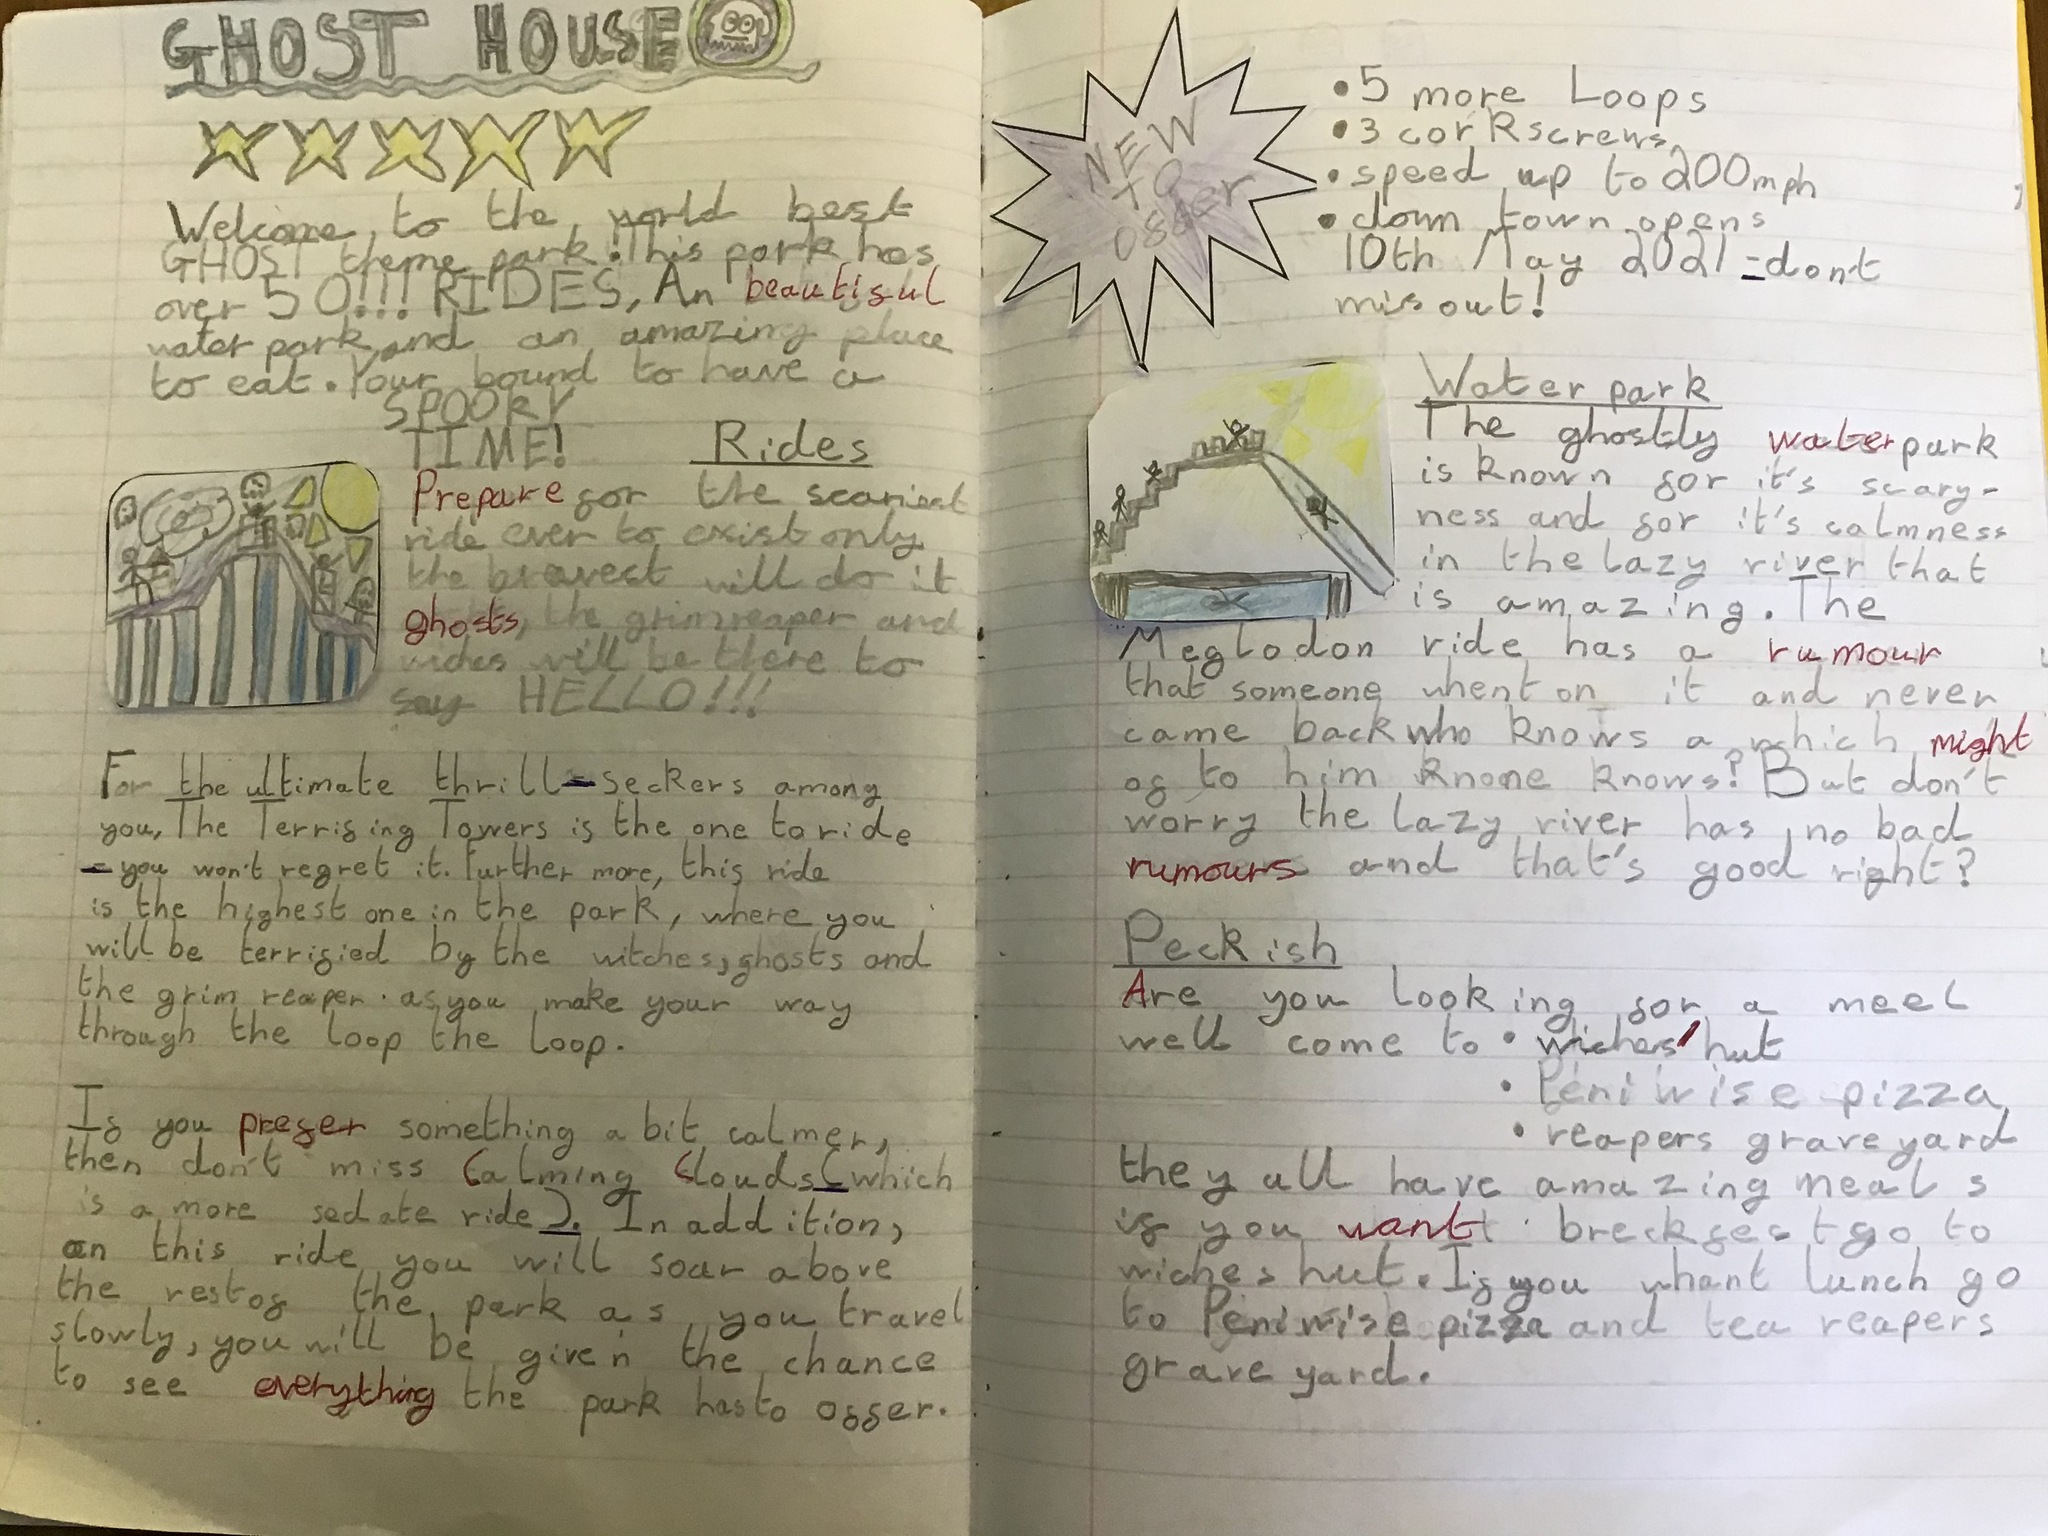 GHOST HOUSE
Welcome to the world best
GHOST theme park! This park has
over 50!!! RIDES, An beautiful
water park and an amazing place
to eat. Your bound to have a
SPOOKY
TIME!
Rides
Prepare for the scariest
ride ever to exist only
the bravest will do it
ghosts, the grimreaper and
will be there to
say HELLO!!!
For the ultimate thrill-seekers among
you, The Terrifying Towers is the one to ride
- you won't regret it. Further more, this ride
is the highest one in the park, where you
will be terrified by the witches, ghosts and
the grim reaper. as you make your way
through the loop the loop.
If you prefer something a bit calmer,
then don't miss Calming Clouds (which
is a more sedate ride). In addition,
on this ride you will soar above
the rest of the park as you travel
slowly, you will be given the chance
to see everything the park has to offer.
NEW
TO
offer
• 5 more Loops
• 3 corkscrews
• speed up to 200mph
• down town opens
10th May 2021 - don't
miss out!
Water park
The ghostly waterpark
is known for it's scary-
ness and for it's calmness
in the lazy river that
is amazing. The
Meglodon ride has a rumour
that someone whent on it and never
came back who knows a which might
of to him knone knows? But don't
worry the lazy river has no bad
rumours and that's good right?
Peckish
Are you looking for a meel
well come to • wiches' hut
• Peniwise pizza
• reapers graveyard
they all have amazing meals
if you want breckfest go to
wiches hut. If you whant lunch go
to Peniwise pizza and tea reapers
grave yard.